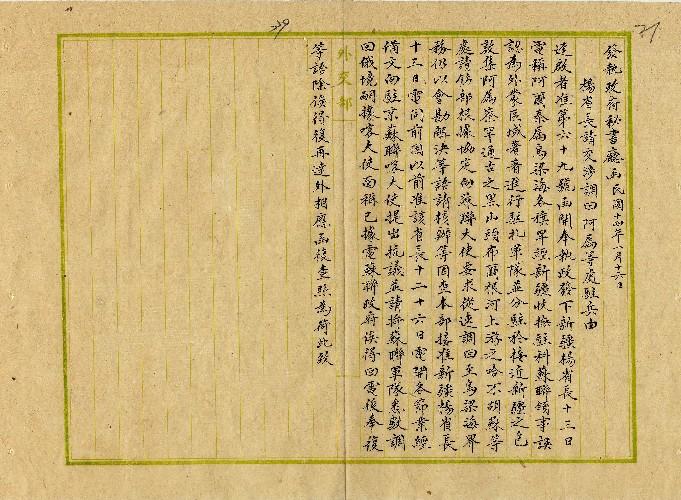 發執政府秘書廳函民國十四年八月十六日
楊省長請交涉調回阿屬等處駐兵由
逕啟者准第六十九號函開奉執政發下新疆楊省長十三日
電稱阿爾泰屬烏梁海各種早經新疆收撫駐科蘇聯領事誤
認為外蒙區域著著進行駐扎軍隊並分駐於接近新疆之
敦集阿屬蔡罕通古之黑山頭布爾根河上游之哈不胡蘇等
處請飭部從據協定向蘇聯大使要求從速調回至烏梁海界
務仍以會勘解決等語請核辦等因查本部接准新疆楊省長
十三日電同前因以前准該省長十二十六日電開各節業經
備文向駐京蘇聯喀大使提出抗議並請將蘇聯軍隊悉數調
回俄境嗣據喀大使面稱已據電蘇聯政府俟得回電後奉復
等語除俟得復再達外相應函復查照為荷此致
外交部
29
27